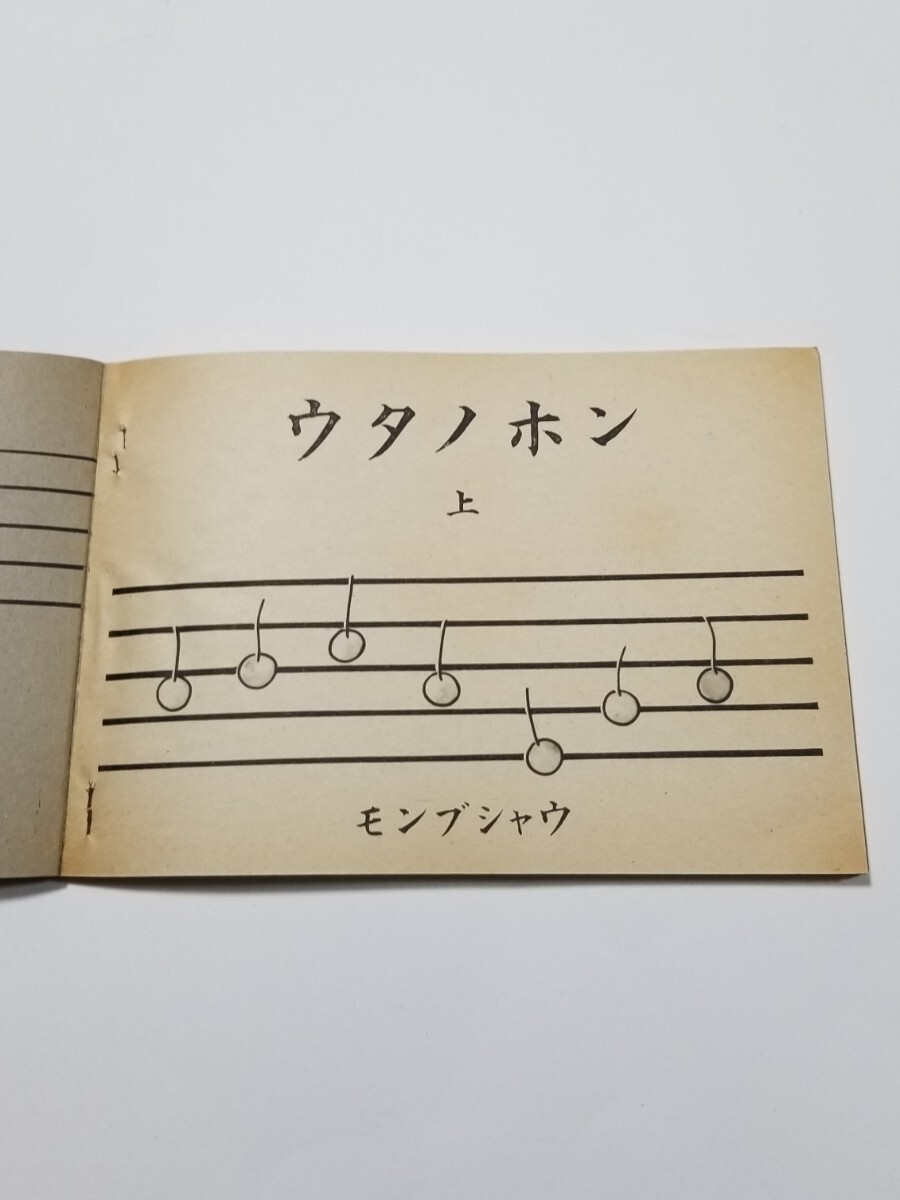 ウタノホン
上
モンブシャウ